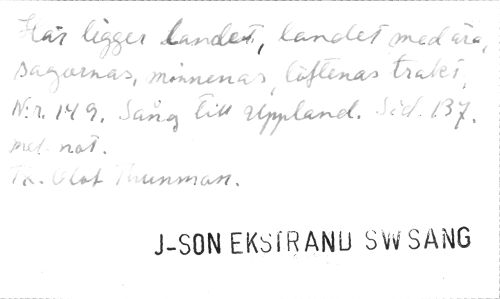 Här ligger landet, landet med ära,
sagornas, minnenas, löftenas trakt,
N:r. 149. Sång till Uppland. Sid. 137.
mel. not.
Tx. Olof Thunman.
J-SON EKSTRAND SWSANG